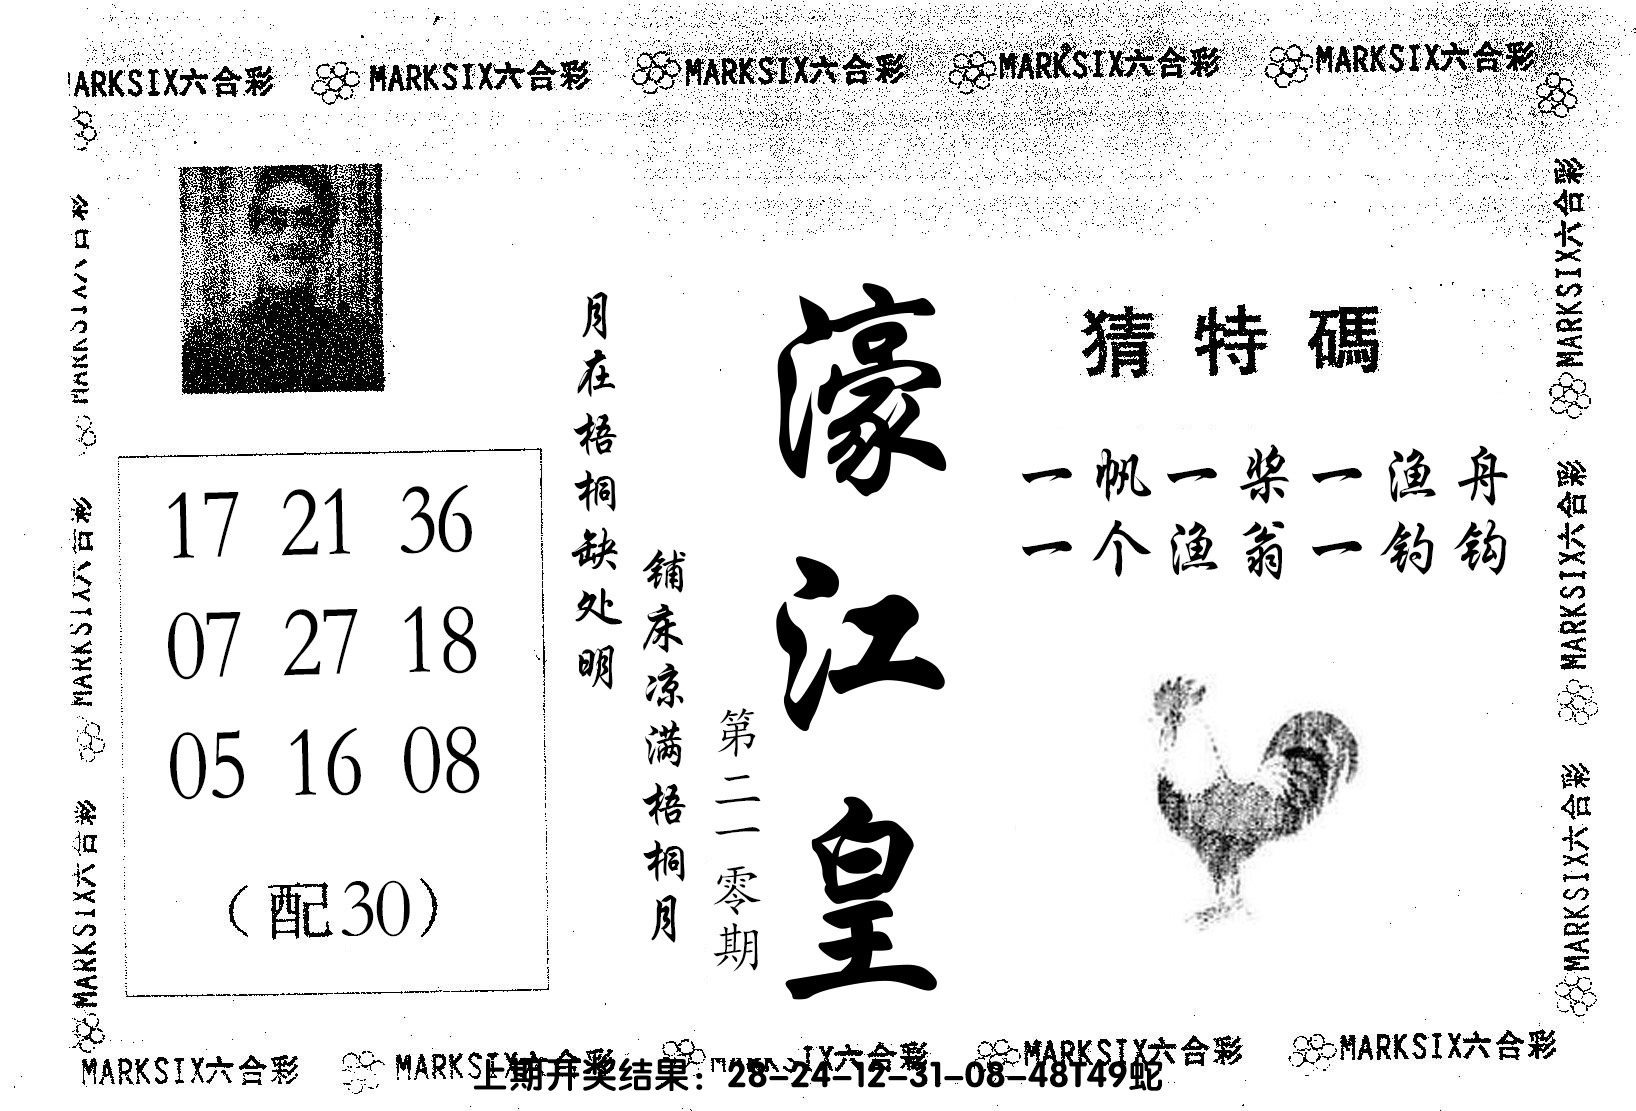 MARKSIX六合彩 MARKSIX六合彩 MARKSIX六合彩 MARKSIX六合彩 MARKSIX六合彩
MARKSIX六合彩
MARKSIX六合彩
MARKSIX六合彩
17 21 36
07 27 18
05 16 08
（配30）
月在梧桐缺处明
铺床凉满梧桐月
第二一零期
濠江皇
猜特碼
一帆一桨一渔舟
一个渔翁一钓钩
MARKSIX六合彩
MARKSIX六合彩
MARKSIX六合彩
MARKSIX六合彩 MARKSIX六合彩 MARKSIX六合彩 MARKSIX六合彩 MARKSIX六合彩
上期开奖结果：28-24-12-31-08-48T49蛇